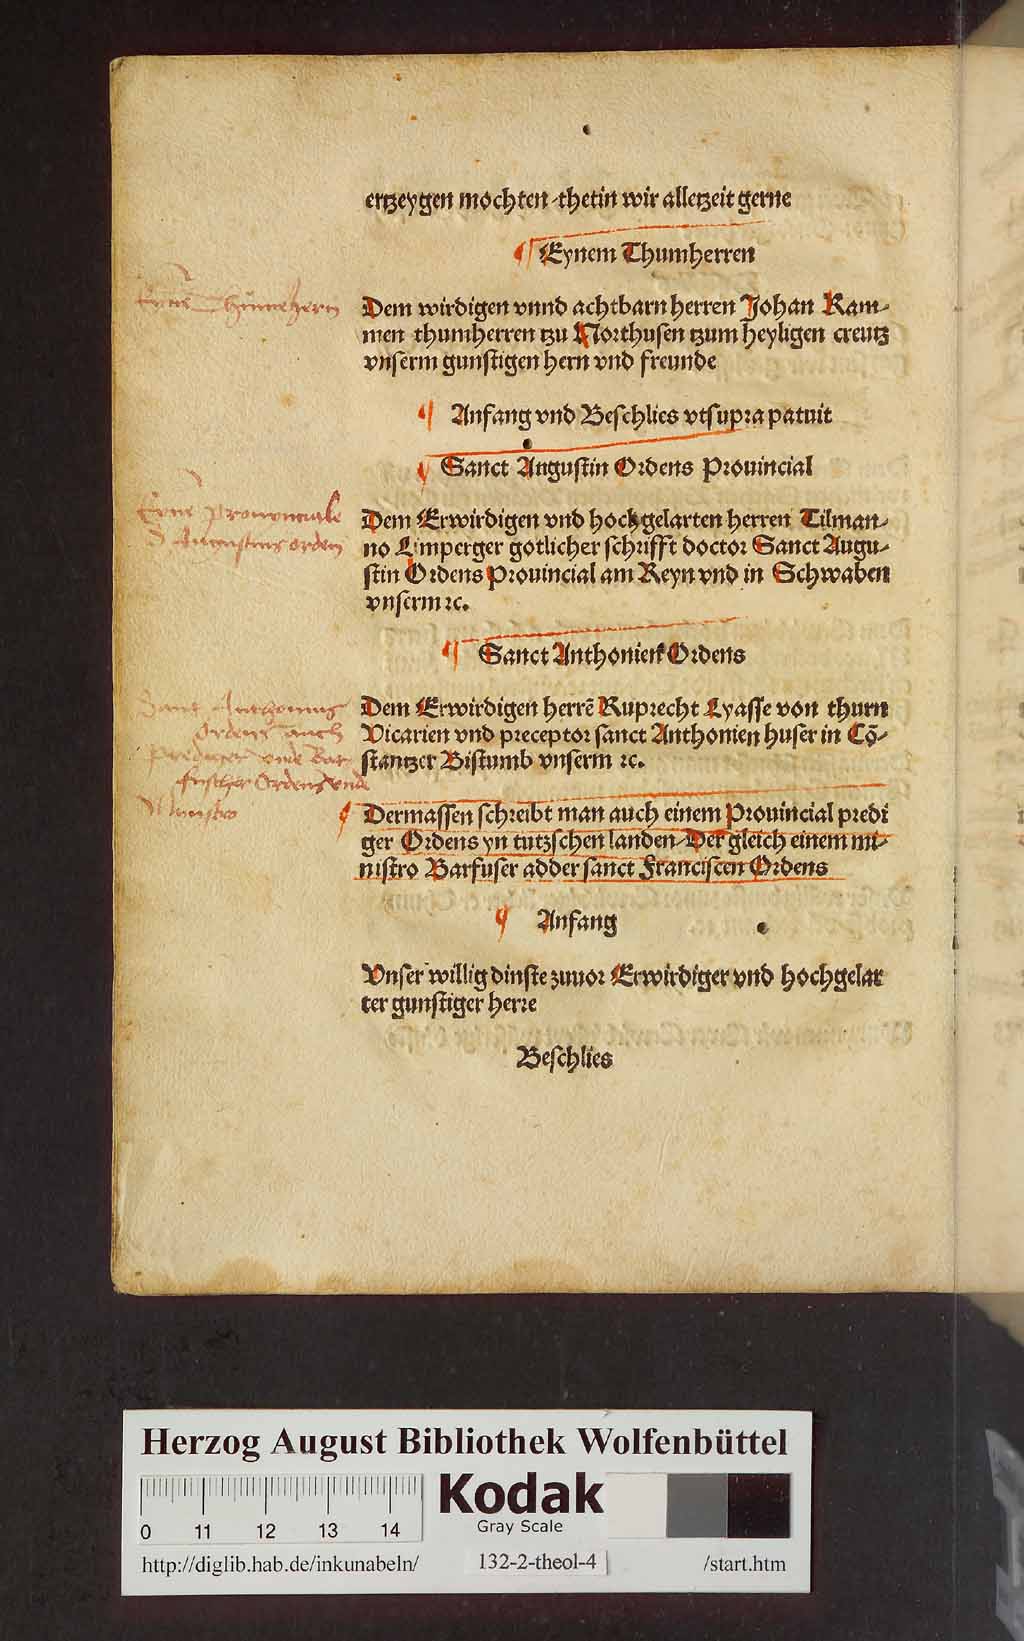 ertzeygen mochten thetin wir alletzeit gerne
¶ Eynem Thumherren
Dem wirdigen vnnd achtbarn herren Johan Ram-
men thumherren tzu Northusen tzum heyligen creutz
vnserm gunstigen hern vnd freunde
¶ Anfang vnd Beschlies vtsupra patuit
¶ Sanct Augustin Ordens Prouincial
Eyne prouinciale
S Augustins orden
Dem Erwirdigen vnd hochgelarten herren Tilman-
no Limperger gotlicher schrifft doctor Sanct Augu-
stin Ordens Prouincial am Reyn vnd in Schwaben
vnserm ꝛc.
¶ Sanct Anthonien Ordens
Sant Anthonius
Ordens auch
Prediger vnde Bar-
fuscher Ordens vnde
Ministro
Dem Erwirdigen herrẽ Ruprecht Lyasse von thurn
Vicarien vnd preceptor sanct Anthonien huser in Cõ-
stantzer Bistumb vnserm ꝛc.
¶ Dermassen schreibt man auch einem Prouincial predi
ger Ordens yn tutzschen landen Der gleich einem mi-
nistro Barfuser adder sanct Franciscen Ordens
¶ Anfang
Vnser willig dinste zuuor Erwirdiger vnd hochgelar
ter gunstiger herre
Beschlies
Herzog August Bibliothek Wolfenbüttel
Kodak
Gray Scale
0 11 12 13 14
http://diglib.hab.de/inkunabeln/ 132-2-theol-4 /start.htm